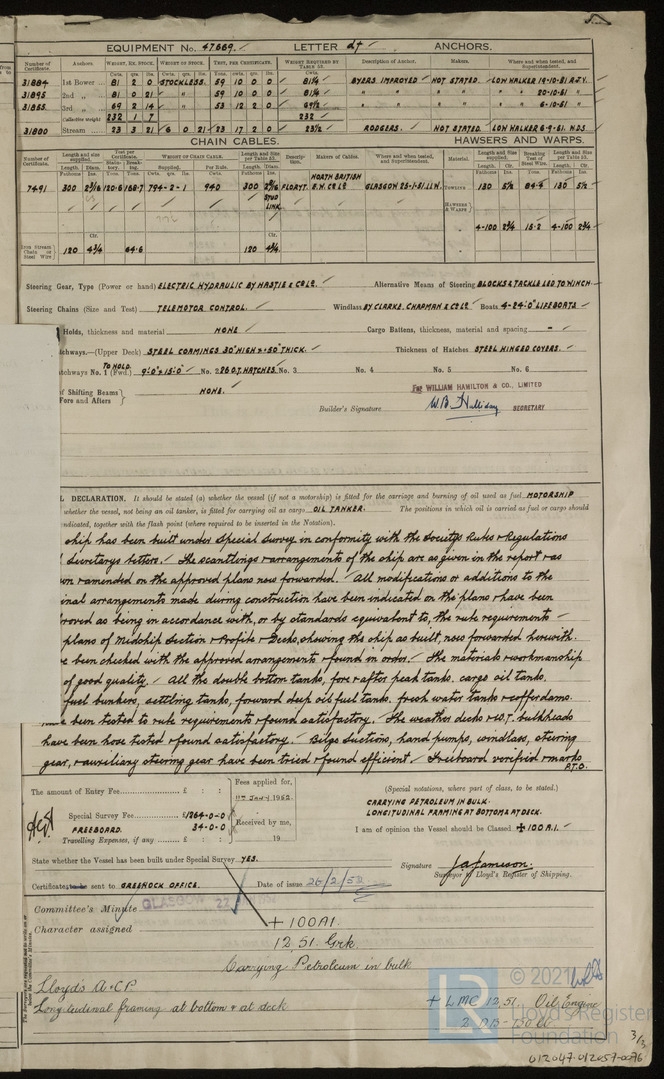 EQUIPMENT No. 47669. LETTER d† ANCHORS.
Number of Certificate. Anchors. WEIGHT, EX. STOCK. WEIGHT OF STOCK. TEST, PER CERTIFICATE. WEIGHT REQUIRED BY TABLE 53. Description of Anchor. Makers. Where and when tested, and Superintendent.
31884 1st Bower 81 2 0 STOCKLESS. 59 10 0 0 81¼ BYERS IMPROVED NOT STATED. LOW WALKER 19-10-51 R.J.Y.
31895 2nd " 81 0 21 " 59 10 0 0 81¼ " " " " 20-10-51 "
31855 3rd " 69 2 14 " 53 12 2 0 69½ " " " " 6-10-51 "
Collective weight 232 1 7 232
31800 Stream 23 3 21 6 0 21 23 17 2 0 23½ RODGERS. NOT STATED. LOW WALKER 6-9-51. N.D.S
CHAIN CABLES. HAWSERS AND WARPS.
Number of Certificate. Length and size supplied. Test per Certificate. WEIGHT OF CHAIN CABLE. Length and Size per Table 53. Description. Makers of Cables. Where and when tested, and Superintendent. Material. Length and Size supplied. Breaking Test of Steel Wire. Length and Size per Table 53.
7491 300 2 9/16 120·6 168·7 794-2-1 940 300 2 9/16 STUD LINK FLDRYT. NORTH BRITISH E.W. Co Ld GLASGOW 25-1-51. I.L.W. TOWLINE 130 5½ 84·4 130 5½
HAWSERS & WARPS
4-100 2¾ 15·2 4-100 2¾
Iron Stream Chain or Steel Wire 120 4¾ 64·6 120 4¾
Steering Gear, Type (Power or hand) ELECTRIC HYDRAULIC BY HASTIE & Co Ld. Alternative Means of Steering BLOCKS & TACKLE LED TO WINCH
Steering Chains (Size and Test) TELEMOTOR CONTROL. Windlass BY CLARKE, CHAPMAN & Co Ld Boats 4-24'·0" LIFEBOATS
Holds, thickness and material NONE Cargo Battens, thickness, material and spacing –
tchways.—(Upper Deck) STEEL COAMINGS 30" HIGH & ·50" THICK. Thickness of Hatches STEEL HINGED COVERS.
TO HOLD
tchways No. 1 (Fwd.) 9'·0" x 15'·0" No. 2 26 O.T. HATCHES. No. 3 No. 4 No. 5 No. 6
of Shifting Beams
Fore and Afters NONE.
For WILLIAM HAMILTON & CO., LIMITED
Builder's Signature W.B. Halliday SECRETARY
L DECLARATION. It should be stated (a) whether the vessel (if not a motorship) is fitted for the carriage and burning of oil used as fuel MOTORSHIP
whether the vessel, not being an oil tanker, is fitted for carrying oil as cargo OIL TANKER. The positions in which oil is carried as fuel or cargo should
indicated, together with the flash point (where required to be inserted in the Notation).
ship has been built under Special Survey in conformity with the Society's Rules & Regulations
Secretary's letters. The scantlings & arrangements of the ship are as given in the report & as
wn & amended on the approved plans now forwarded. All modifications or additions to the
inal arrangements made during construction have been indicated on the plans & have been
roved as being in accordance with, or by standards equivalent to, the rule requirements –
plans of Midship Section & Profile & Decks, showing the ship as built, now forwarded herewith.
e been checked with the approved arrangements & found in order. The materials & workmanship
of good quality. All the double bottom tanks, fore & after peak tanks, cargo oil tanks,
fuel bunkers, settling tanks, forward deep oil fuel tanks, fresh water tanks & cofferdams
been tested to rule requirements & found satisfactory. The weather decks & W.T. bulkheads
have been hose tested & found satisfactory. Bilge suctions, hand pumps, windlass, steering
gear, & auxiliary steering gear have been tried & found efficient. Freeboard verified & marks
P.T.O.
The amount of Entry Fee £ : : Fees applied for,
11TH JANY 1952.
Special Survey Fee £1264-0-0
FREEBOARD. 34-0-0 Received by me,
Travelling Expenses, if any £ : : 19
(Special notations, where part of class, to be stated.)
CARRYING PETROLEUM IN BULK.
LONGITUDINAL FRAMING AT BOTTOM & AT DECK.
I am of opinion the Vessel should be Classed ✠ 100 A.1.
State whether the Vessel has been built under Special Survey YES.
Signature J.A. Jameson.
Surveyor to Lloyd's Register of Shipping.
Certificate to be sent to GREENOCK OFFICE. Date of issue 26/2/52
Committee's Minute GLASGOW 22
Character assigned + 100A1.
12.51. Grk
Carrying Petroleum in bulk
Lloyd's A & CP
Longitudinal framing at bottom & at deck
+ LMC 12,51. Oil Engine
2 DB - 150 lb
© 2021
LR Lloyd's Register
Foundation
3/3
012047-012057-0076